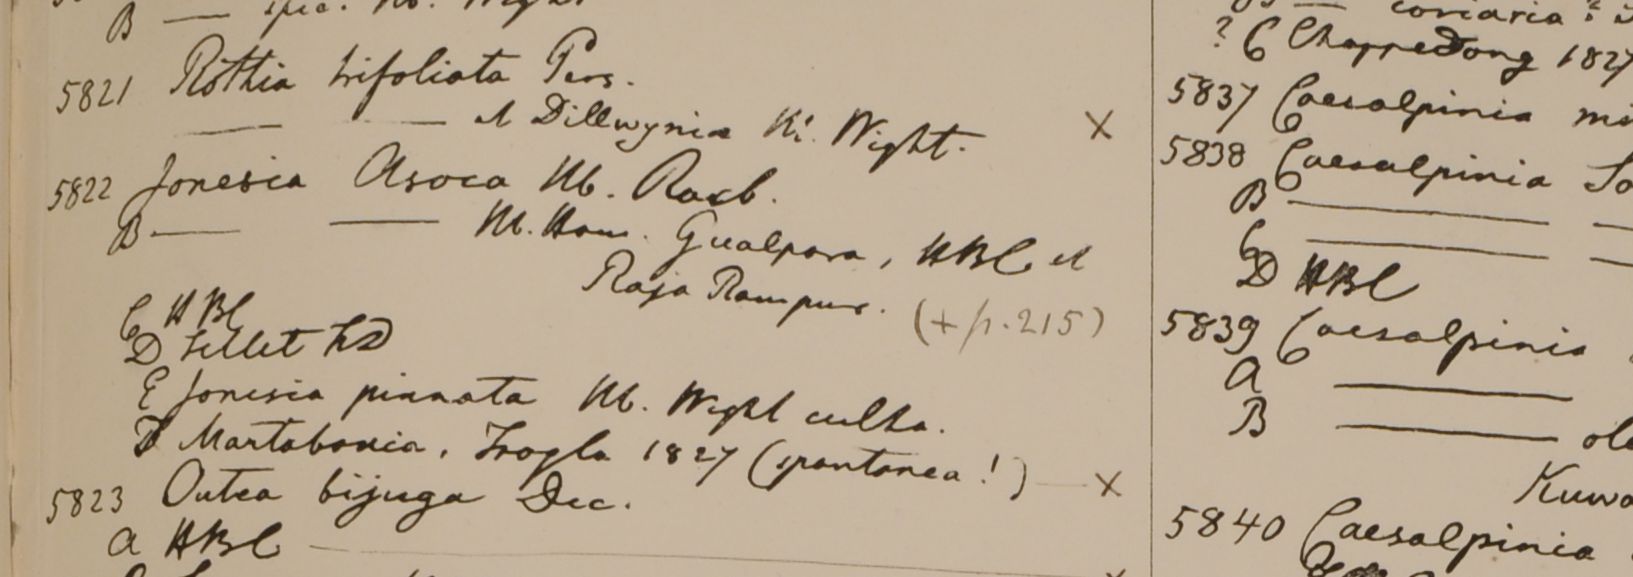 B — spec. Hb. Wight
5821 Rothia trifoliata Pers.
— — et Dillwynia Hb. Wight. X
5822 Jonesia Asoca Hb. Roxb.
B — — Hb. Ham. Gualpara, HBC et
Raja Rampur. (+ p. 215)
C HBC
D Sillet FD
E Jonesia pinnata Hb. Wight culta.
F Martabania, Trogla 1827 (spontanea!) — X
5823 Outea bijuga Dec.
A HBC —
coriaria?
? C Chappedong 1827
5837 Caesalpinia
5838 Caesalpinia
B — —
C — —
D HBC
5839 Caesalpinia
A —
B —
5840 Caesalpinia